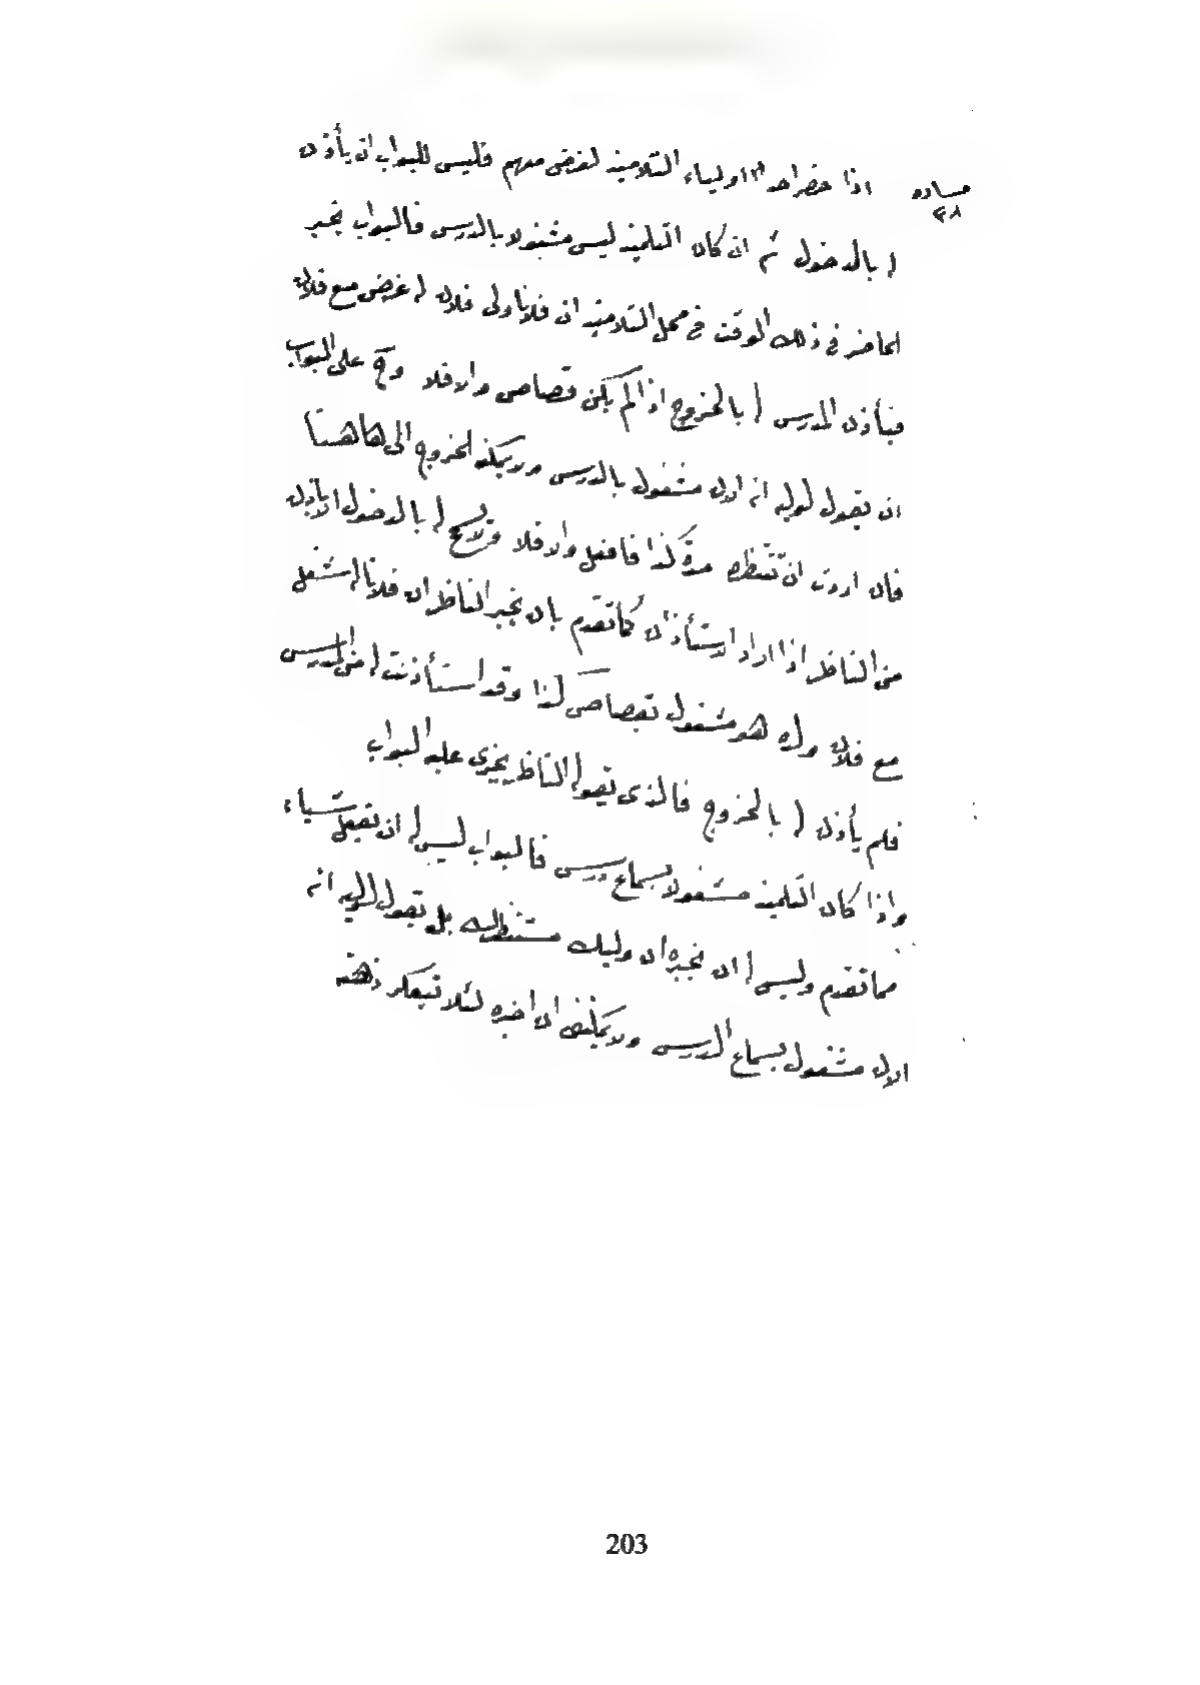 مادة ٢٨ اذا حضر احد اولياء التلاميذ لغرض معهم فليس للبواب ان يأذن
له بالدخول ثم ان كان التلميذ ليس مشغولا بالدرس فالبواب يخبر
الحاضر فى ذلك الوقت فى محل التلاميذ ان فلانا ولى فلان له غرض مع فلان
فيأذن المدرس له بالخروج اذا لم يكن قصاص والا فلا وح على البواب
ان يقول لوليه انه الان مشغول بالدرس ولا يمكنه الخروج الى هاهنا
فان اردت ان تنتظره مدة كذا فافعل والا فلا ولا يسمح له بالدخول الا باذن
من الناظر اذا اراد الاستأذان كما تقدم بان يخبر الناظر ان فلانا له شغل
مع فلان ولده هو مشغول بقصاص كذا وقد استأذنت له من المدرس
فلم يأذن له بالخروج فالذى يقوله الناظر يجرى عليه البواب
واذا كان التلميذ مشغولا بسماع درس فالبواب ليس له ان يفعل شياء
مما تقدم وليس له ان يخبره ان وليك منتظرك بل يقول لوليه انه
الان مشغول بسماع الدرس ولا يمكننى ان اخبره لئلا يتعكر ذهنه
203